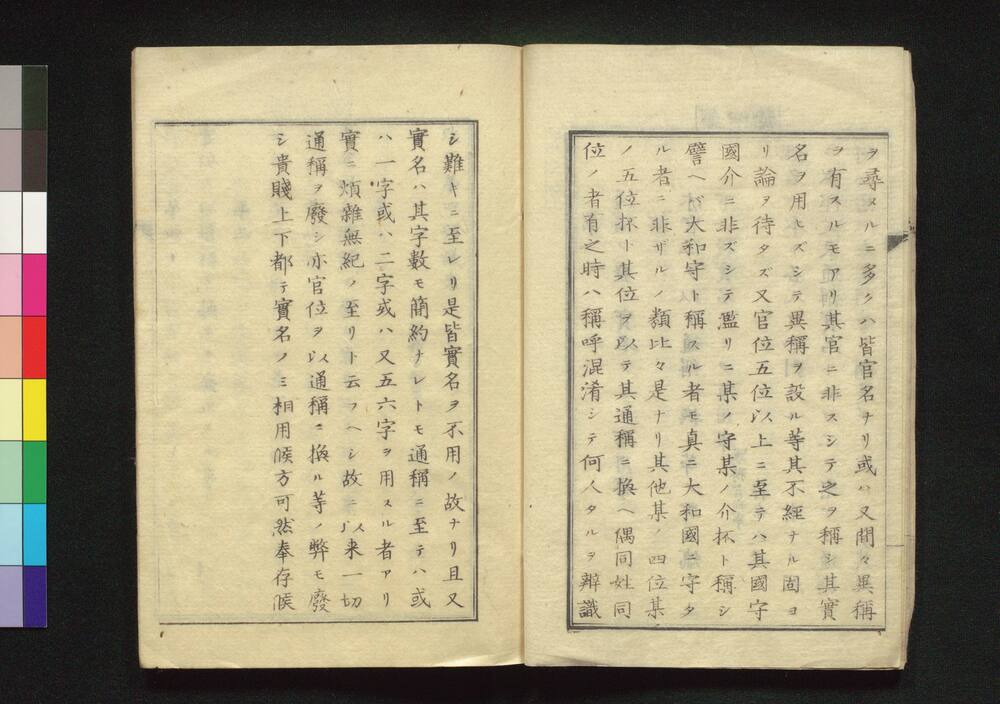 ヲ尋ヌルニ多クハ皆官名ナリ或ハ又間々異稱
ヲ有スルモアリ其官ニ非スシテ之ヲ稱シ其實
名ヲ用ヒズシテ異稱ヲ設ル等其不經ナル固ヨ
リ論ヲ待タズ又官位五位以上ニ至テハ其國守
國介ニ非ズシテ濫リニ某ノ守某ノ介抔ト稱シ
譬ヘバ大和守ト稱スル者モ真ニ大和國ニ守タ
ル者ニ非ザルノ類比々是ナリ其他某ノ四位某
ノ五位抔ト其位ヲ以テ其通稱ニ換ヘ偶同姓同
位ノ者有之時ハ稱呼混淆シテ何人タルヲ辨識
シ難キニ至レリ是皆實名ヲ不用ノ故ナリ且又
實名ハ其字數モ簡約ナレトモ通稱ニ至テハ或
ハ一字或ハ二字或ハ又五六字ヲ用スル者アリ
實ニ煩雜無紀ノ至リト云フヘシ故ニ以来一切
通稱ヲ廢シ亦官位ヲ以通稱ニ換ル等ノ弊モ廢
シ貴賤上下都テ實名ノミ相用候方可然奉存候